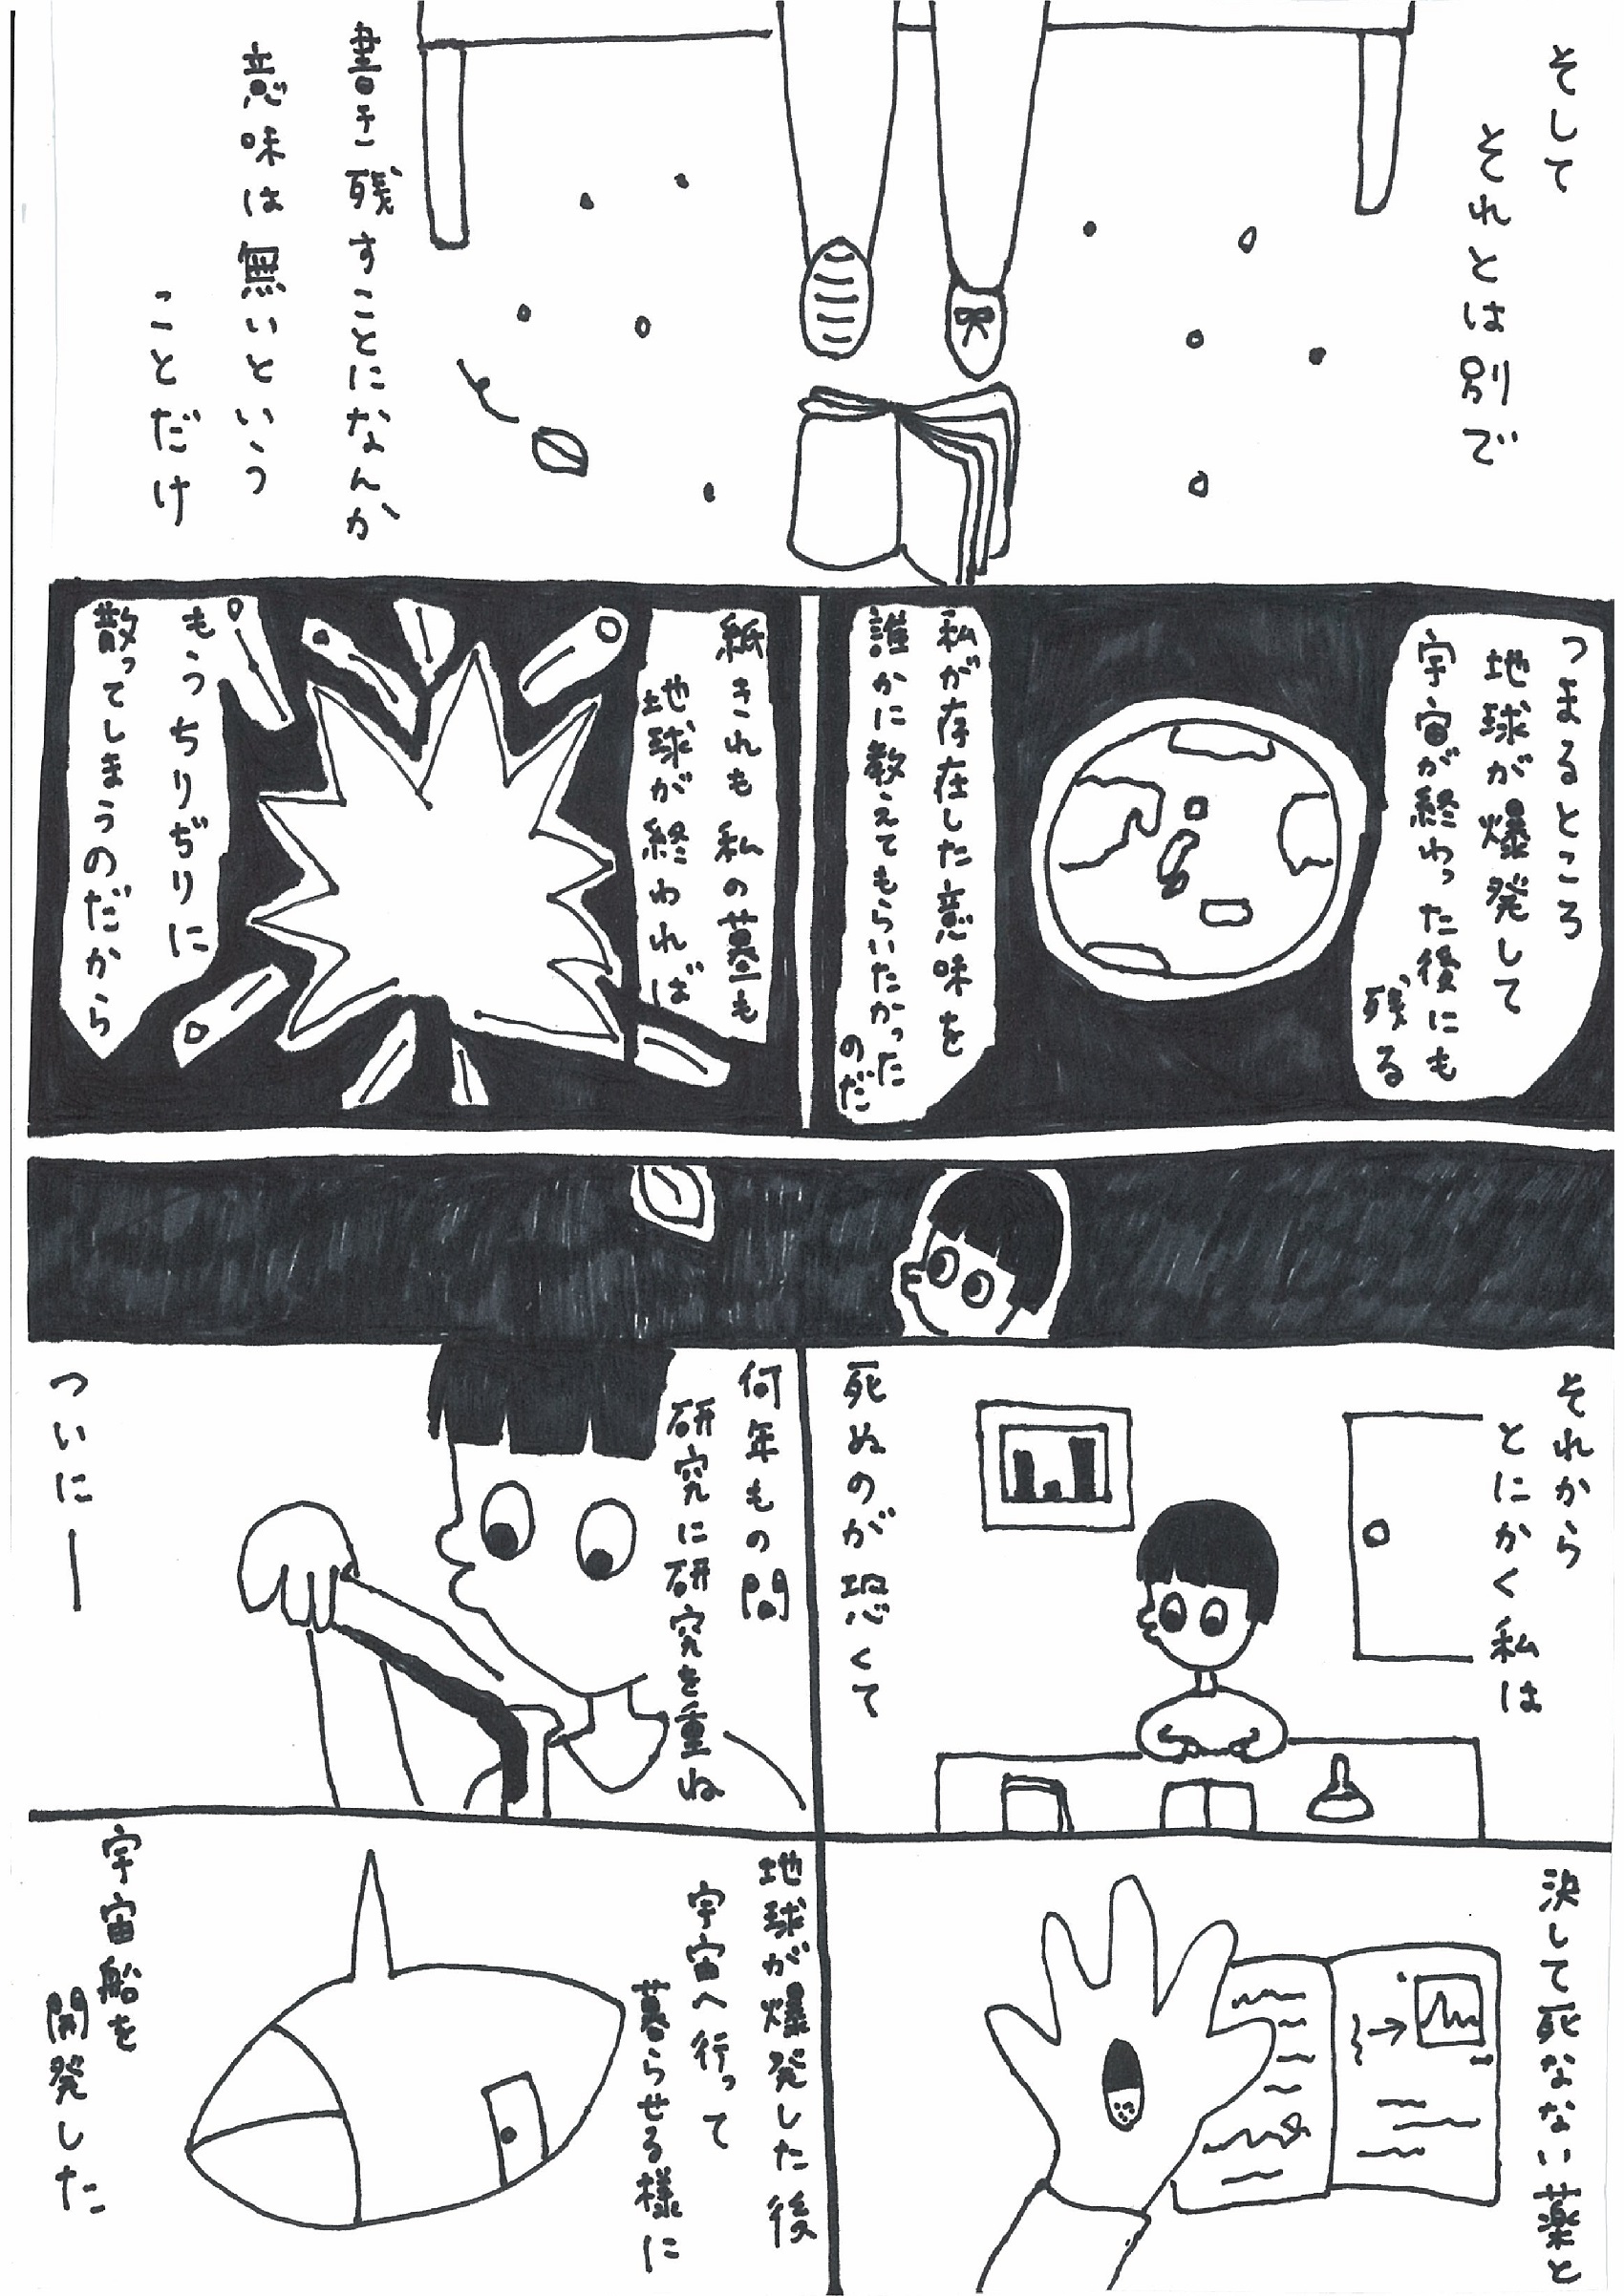 そして
それとは別で
書き残すことになんか
意味は無いという
ことだけ
つまるところ
地球が爆発して
宇宙が終わった後にも
残る
私が存在した意味を
誰かに教えてもらいたかった
のだ
紙きれも私の墓も
地球が終われば
もうちりぢりに
散ってしまうのだから
それから
とにかく私は
死ぬのが恐くて
何年もの間
研究に研究を重ね
ついに―
決して死なない薬と
地球が爆発した後
宇宙へ行って
暮らせる様に
宇宙船を
開発した